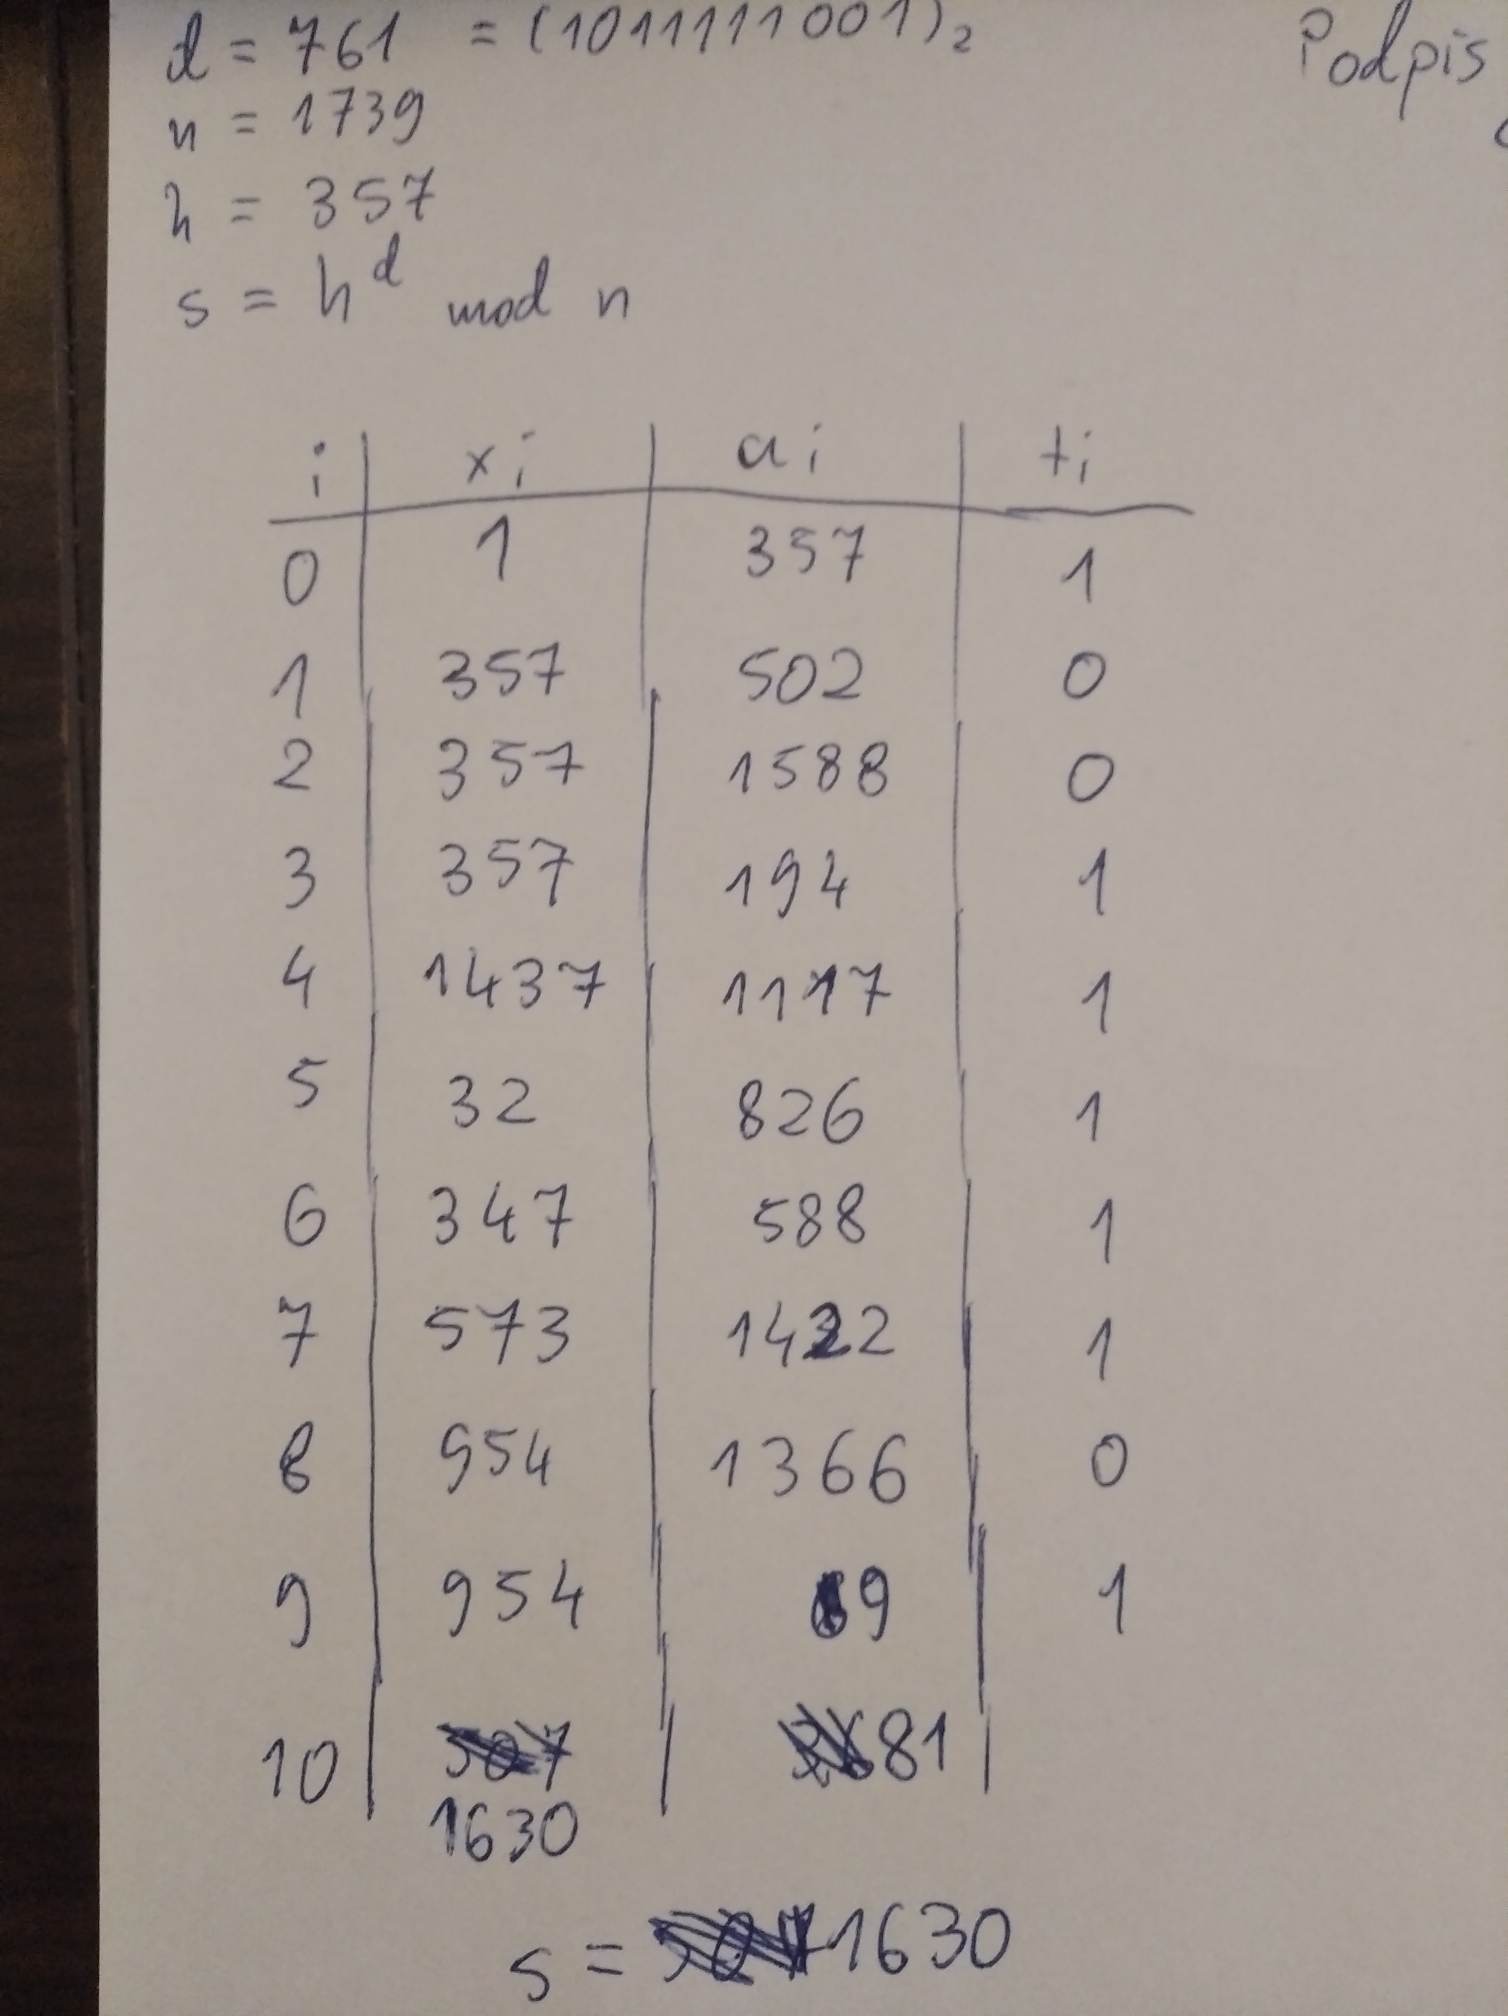 d = 761 = (1011111001)₂
Podpis
n = 1739
h = 357
s = h^d mod n
i xi ai ti
0 1 357 1
1 357 502 0
2 357 1588 0
3 357 194 1
4 1437 1117 1
5 32 826 1
6 347 588 1
7 573 1422 1
8 954 1366 0
9 954 9 1
10 81
1630
s = 1630